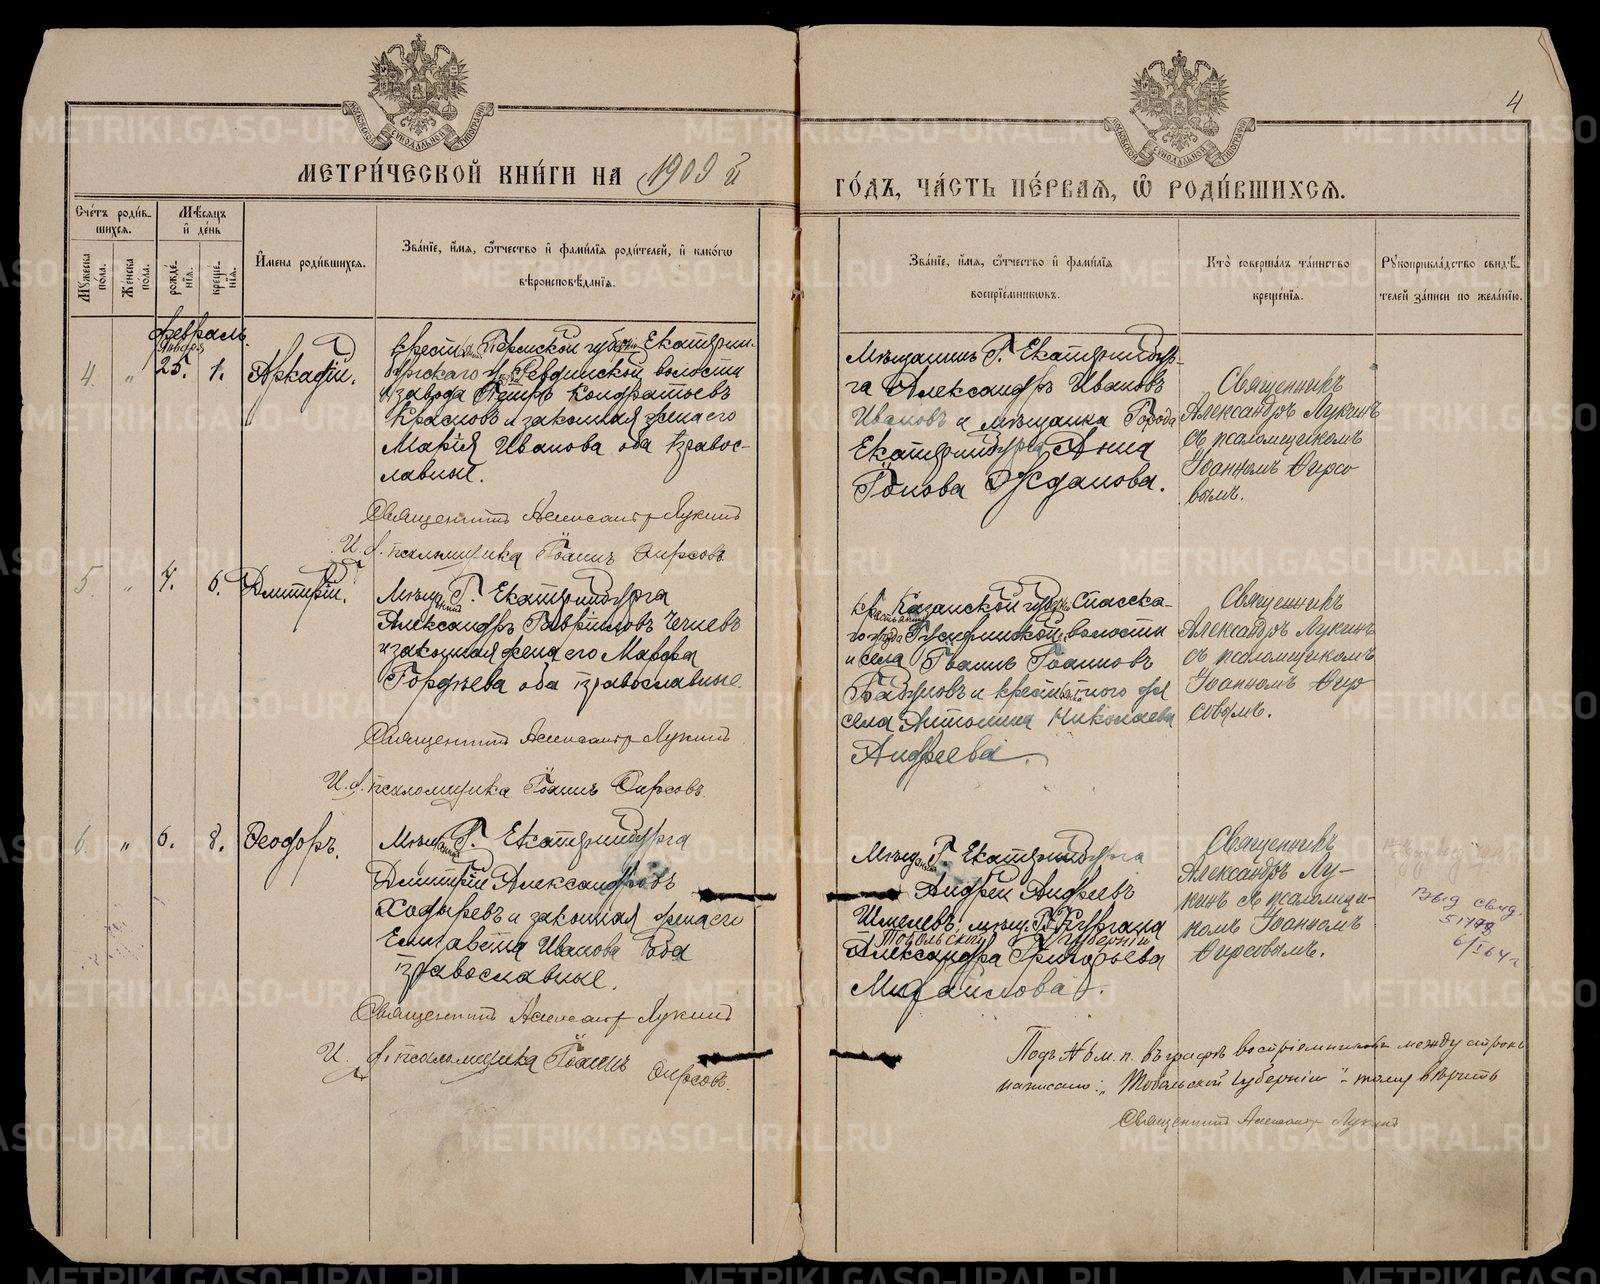 4
МЕТРИ́ЧЕСКОЙ КНИ́ГИ НА 1909 й
ГО́ДЪ, ЧА́СТЬ ПЕ́РВАЯ, Ѽ РОДИ́ВШИХСЯ.
Сче́тъ роди́вшихся.
Мѣ́сяцъ и҆ де́нь
Мꙋ́жеска по́ла.
Же́нска по́ла.
рожде́нїѧ.
креще́нїѧ.
И҆мена роди́вшихся.
Зва́нїе, и҆́мѧ, ѻ҆́тчество и҆ фами́лїѧ роди́телей, и҆ како́гѡ
вѣроисповѣ́данїѧ.
Зва́нїе, и҆́мѧ, ѻ҆́тчество и҆ фами́лїѧ
воспрїе́мникѡвъ.
Кто̀ соверша́лъ та́инство
креще́нїѧ.
Рꙋкоприкла́дство свидѣ́телей за́писи по жела́нїю.
февраль.
Января
4. " 25. 1. Аркадій.
Пермской губерн Екатерин-
бургскаго у. Ревдинской волости
и завода Петръ Кондратьевъ
Красновъ и законная жена его
Марія Иванова оба право-
славные.
Священникъ Александръ Лукинъ
И. д. псаломщика Іоаннъ Фирсовъ
Мѣщанинъ Г. Екатеринбур-
га Александръ Ивановъ
Ивановъ и мѣщанка Города
Екатеринбурга Анна
Іонова Жданова.
Священникъ
Александръ Лукинъ
съ псаломщикомъ
Іоанномъ Фирсо
вымъ.
5. " 4. 6. Дмитрій.
Мѣщанинъ Г. Екатеринбурга
Александръ Гавриловъ
и законная жена его Мавра
Гордѣева оба православные.
Священникъ Александръ Лукинъ
И. д. псаломщика Іоаннъ Фирсовъ.
Казанской губ. Спасска-
го уѣзда волости
и села Іоаннъ Іоанновъ
села Антонина Николаева
Андреева.
Священникъ
Александръ Лукинъ
съ псаломщикомъ
Іоанномъ Фир
совымъ.
6. " 6. 8. Ѳеодоръ.
Мѣщанинъ Г. Екатеринбурга
Дмитрій Александровъ
Ходыревъ и законная жена его
Елизавета Иванова оба
православные.
Священникъ Александръ Лукинъ
И. д. псаломщика Іоаннъ
Фирсовъ.
Мѣщанинъ Г. Екатеринбурга
Андрей Андреевъ
Шмелевъ, мѣщ. Г. Кургана
Тобольской губерніи
Александра Григорьева
Михайлова.
Священникъ
Александръ Лу-
кинъ съ псаломщи-
комъ Іоанномъ
Фирсовымъ.
Выд свид.
6/I 64 г
Подъ № 6 м. п. въ графѣ воспріемниковъ между строкъ
написано: "Тобольской губерніи" - тому вѣрить
Священникъ Александръ Лукинъ
METRIKI.GASO-URAL.RU